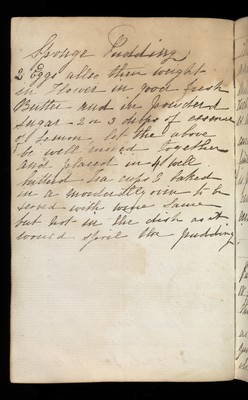 Sponge Pudding
2 Eggs allso their weight
in Flower in good fresh
Butter and in Powderd
sugar - 2 or 3 drops of essence
of Lemon, let the above
be well mixed together
and placed in 4 well
butterd Tea cups & baked
in a moderate oven to be
served with wine Sauce
but not in the dish as it
would spoil the pudding